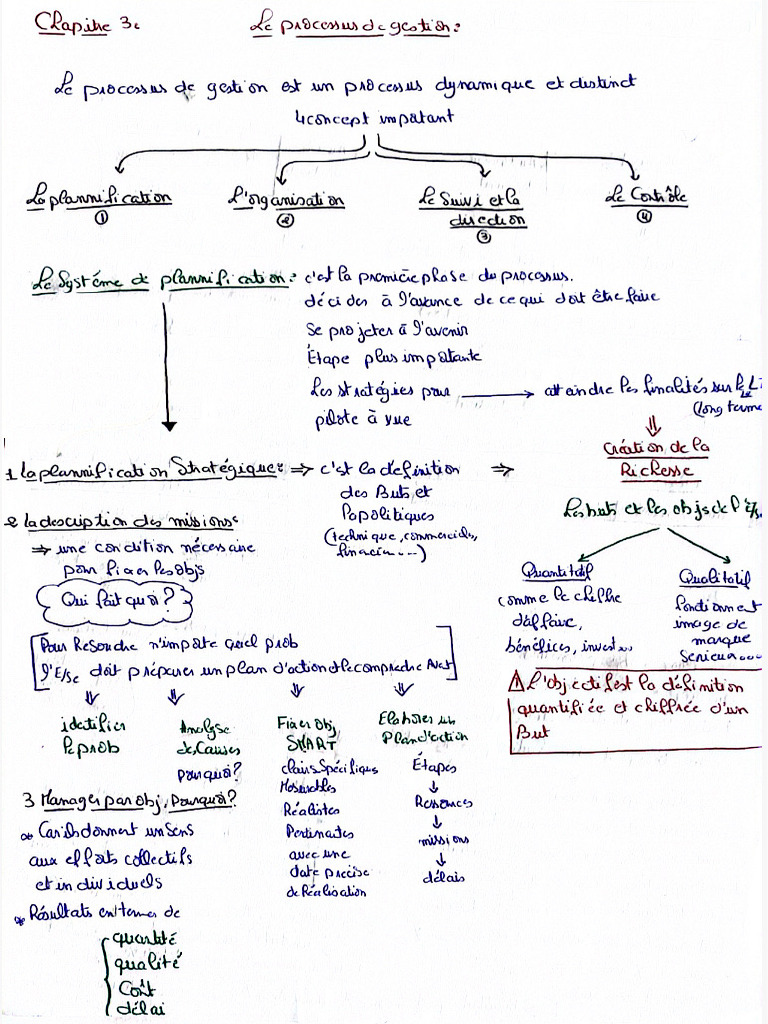 Chapitre 3: Le processus de gestion:
Le processus de gestion est un processus dynamique et distinct
4 concept important
La plannification
①
L'organisation
②
Le Suivi et la
direction
③
Le Contrôle
④
Le Système de plannification: c'est la première phase du processus.
décides à l'avance de ce qui doit être faire
Se projeter à l'avenir
Étape plus importante
Les stratégies pour → atteindre les finalités sur le LT
pilote à vue
(long terme
⇓
Création de la
Richesse
1 La plannification Stratégique: ⇒ c'est la définition ⇒
des Buts et
Popolitiques
(technique, commerciales,
financière....)
Les buts et les objs de l'E/se
Quantitatif
comme le chiffre
d'affaire,
bénéfices, invest...
Qualitatif
fonctionnment
image de
marque
Serieux....
⚠ L'objectif est la définition
quantifiée et chiffrée d'un
But
2 la description des missions:
⇒ une condition nécessaire
pour fixer les objs
Qui fait quoi?
Pour Resoudre n'importe quel prob
l'E/se doit préparer un plan d'action et le comprendre Avant
⇓ ⇓ ⇓ ⇓
identifier
le prob
Analyse
des Causes
pourquoi?
Fixer obj
SMART
clairs Spécifiques
Mesurables
Réalistes
Pertinantes
avec une
date précise
de Réalisation
Elaborer un
Plan d'action
Étapes
↓
Ressources
↓
missions
↓
délais
3 Manager par obj, Pourquoi?
* Car ils donnent un sens
aux efforts collectifs
et individuels
* Résultats en termes de
quantité
qualité
Coût
délai